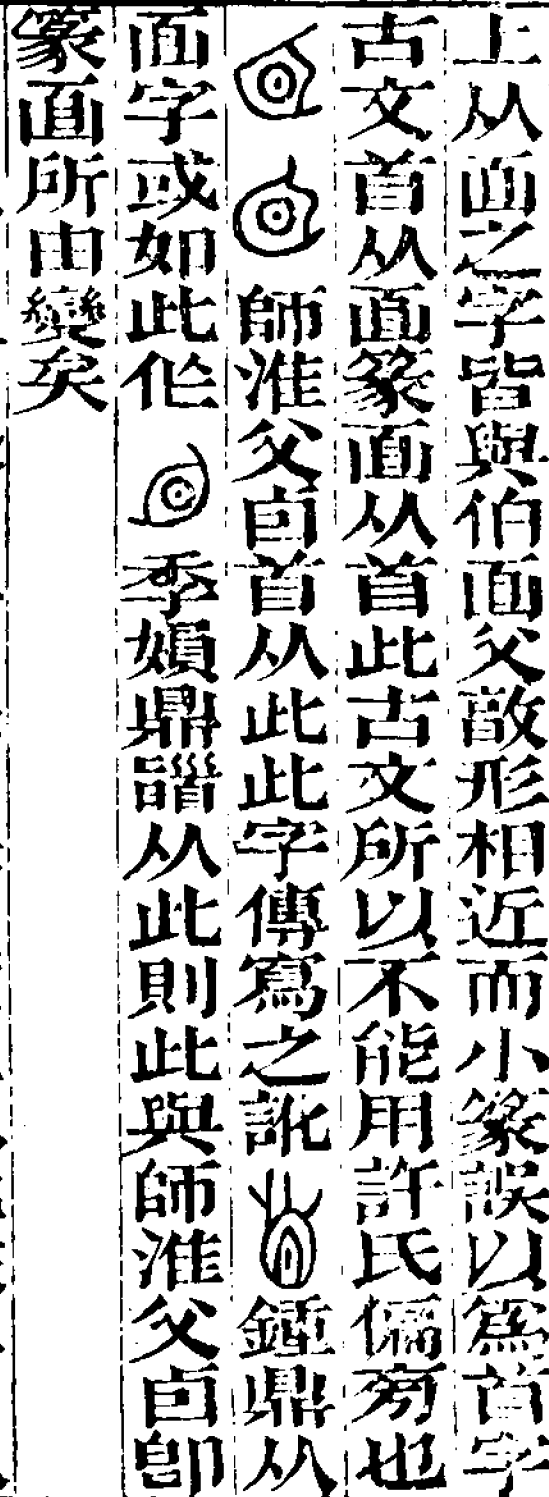 上从面之字皆與伯面父敦形相近而小篆誤以爲首字
古文首从面篆面从首此古文所以不能用許氏偏旁也
師淮父卣首从此此字傳寫之訛鍾鼎从
面字或如此作季頵鼎䭫从此則此與師淮父卣卽
篆面所由變矣